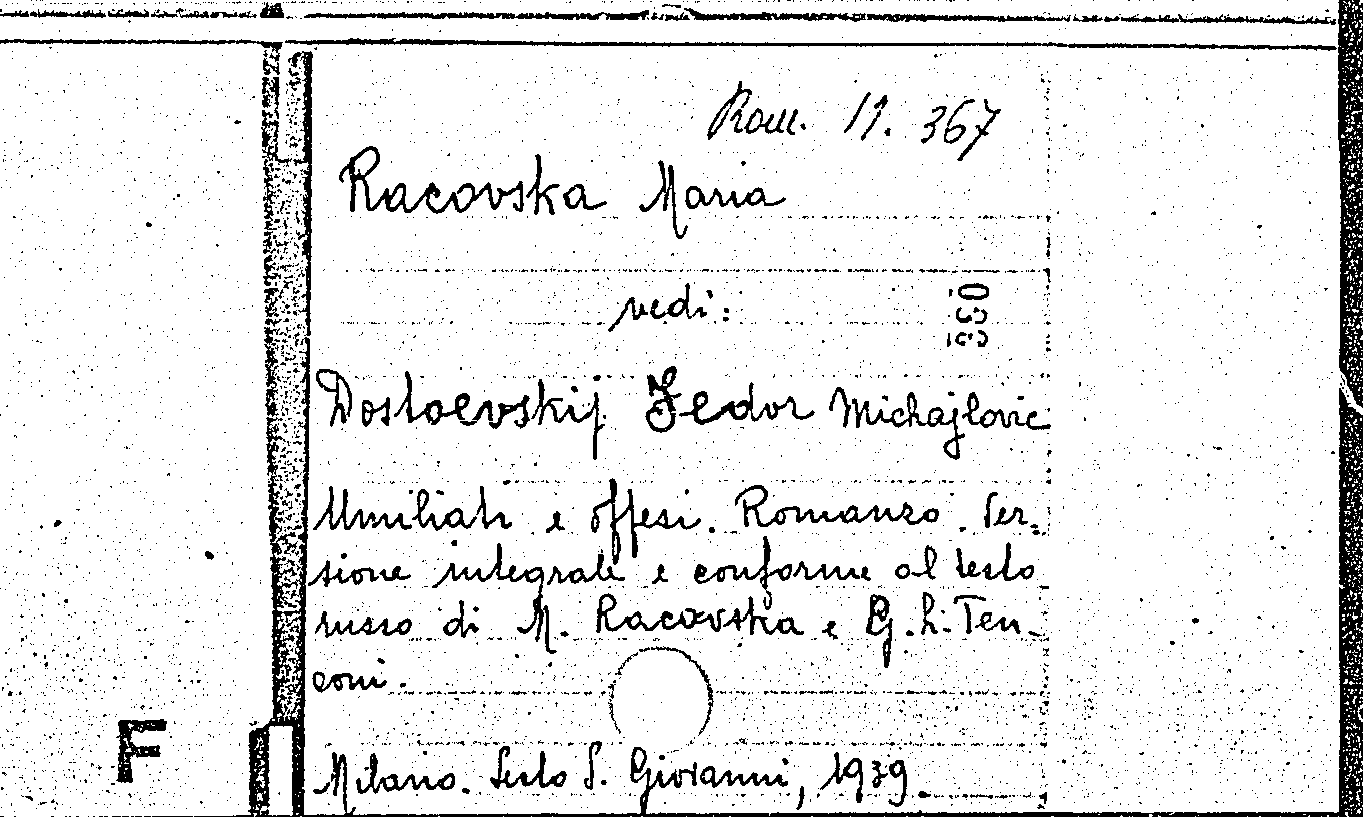 Rom. 11. 367
Racovska Maria
vedi:
360
Dostoevskij Fedor Michajlovic
Umiliati e offesi. Romanzo. Ver=
sione integrale e conforme al testo
russo di M. Racovska e G. L. Ten-
coni.
F
Milano. Sesto S. Giovanni, 1939.